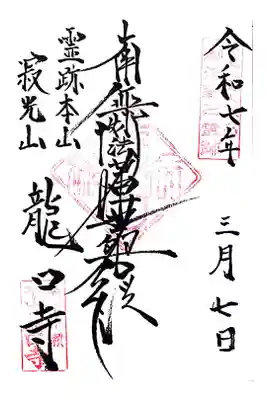 令和七年
三月七日
南無妙法蓮華経
霊跡本山
寂光山
龍口寺